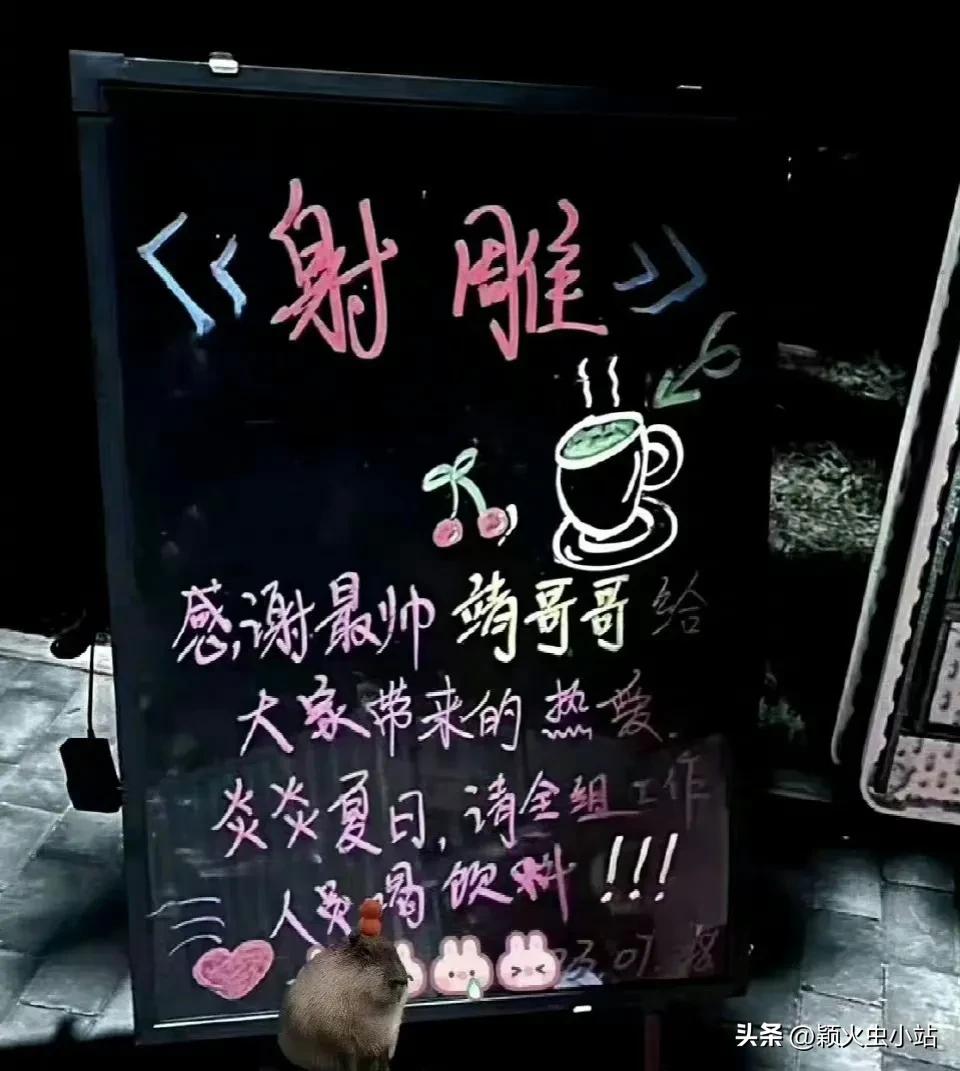 《射雕》
感谢最帅靖哥哥给
大家带来的热爱.
炎炎夏日,请全组工作
人员喝饮料!!!
头条 @颖火虫小站